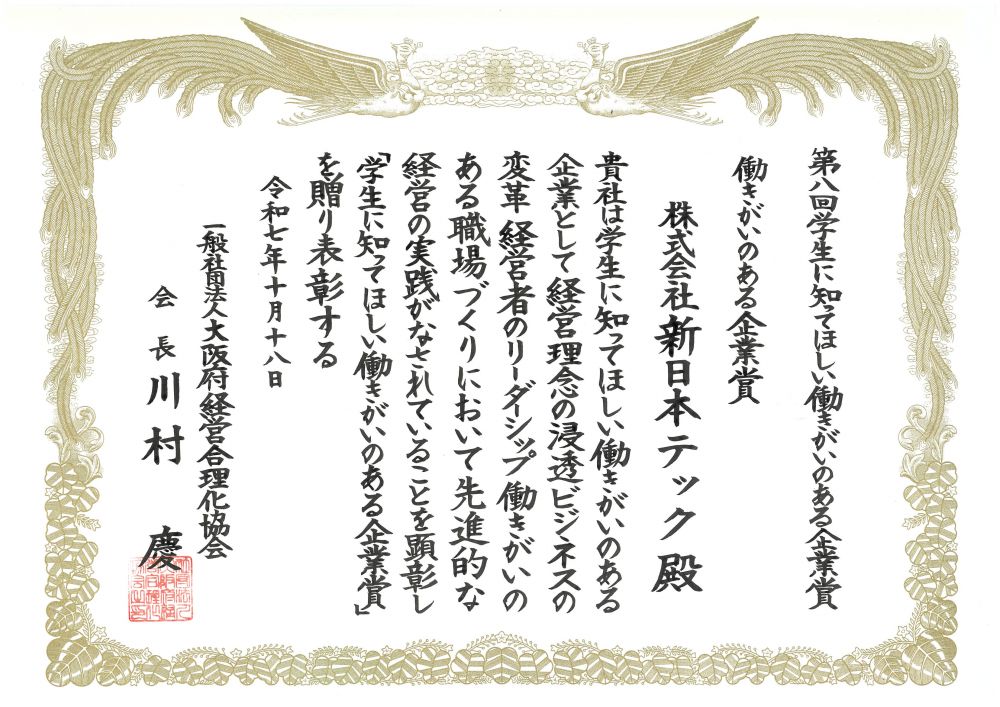 第八回学生に知ってほしい働きがいのある企業賞
働きがいのある企業賞
株式会社新日本テック殿
貴社は学生に知ってほしい働きがいのある
企業として経営理念の浸透ビジネスの
変革 経営者のリーダーシップ働きがいの
ある職場づくりにおいて先進的な
経営の実践がなされていることを顕彰し
「学生に知ってほしい働きがいのある企業賞」
を贈り表彰する
令和七年十月十八日
一般社団法人大阪府経営合理化協会
会長 川村 慶